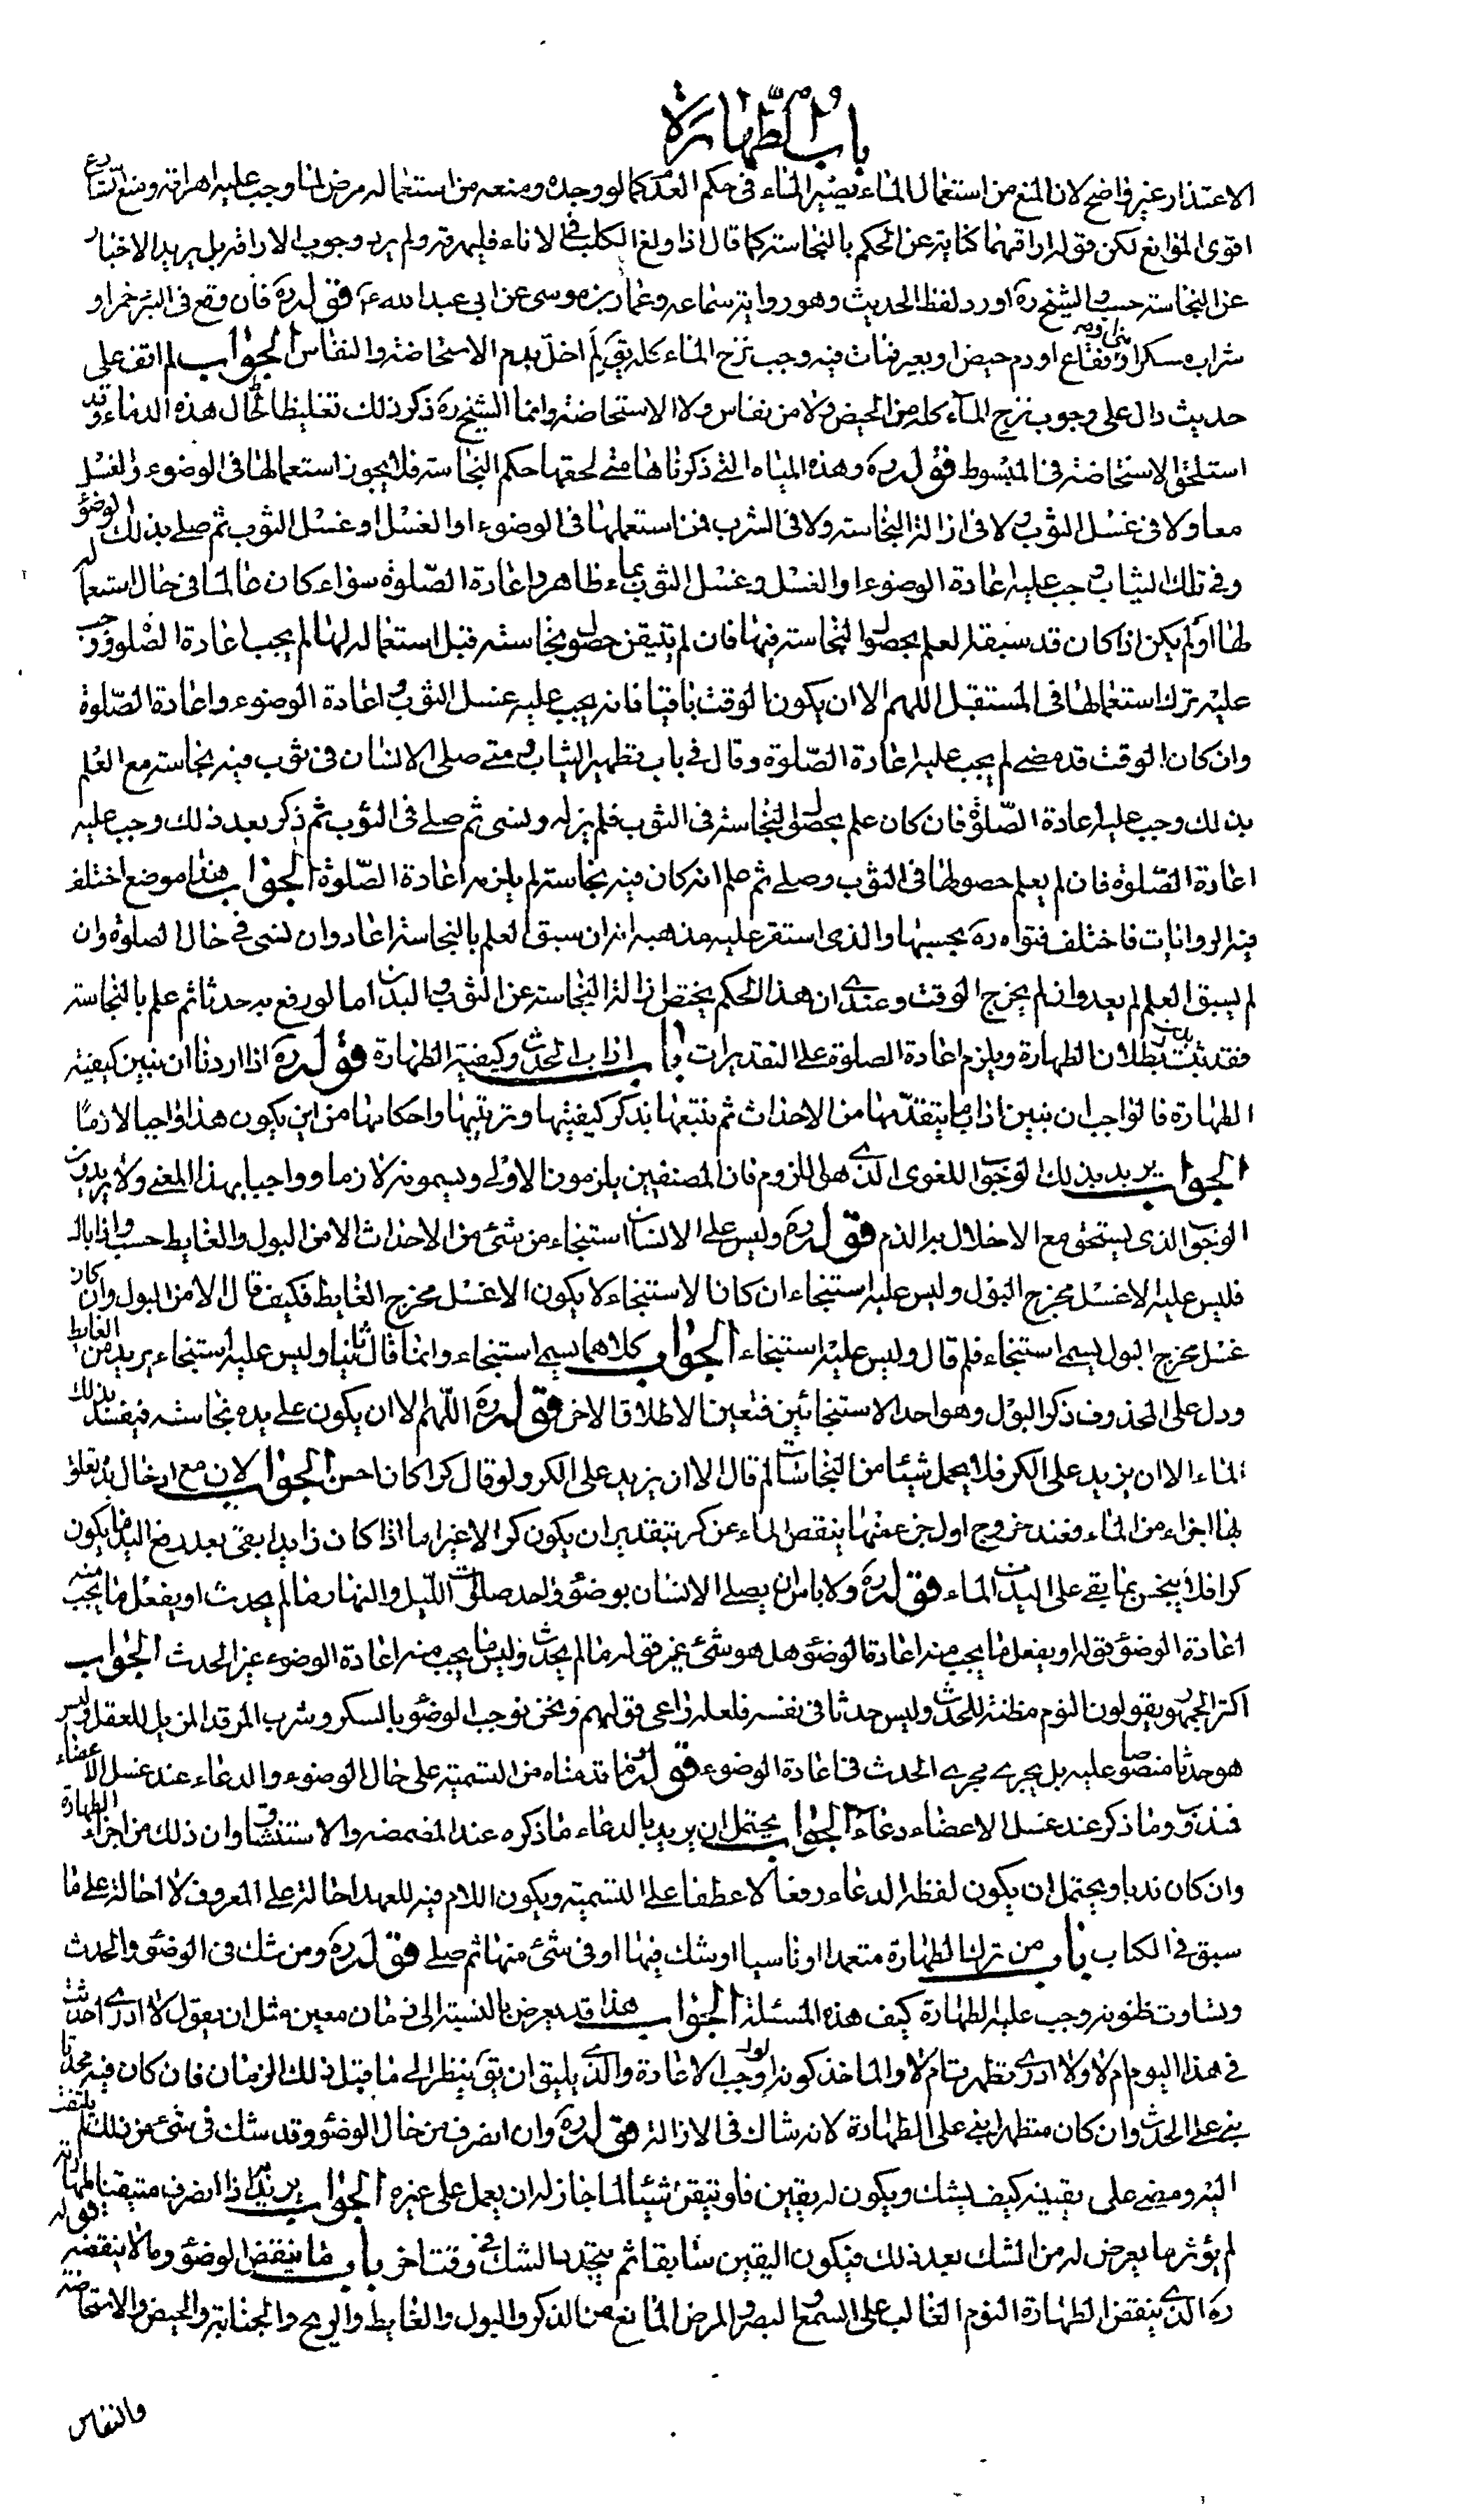 باب الطهارة
الاعتذار غير واضح لان المنع من استعمال الماء يصير الماء فى حكم العدم كما لو وجده ومنعه من استعماله مرض لما وجب عليه اهراقه ومنع الشارع
اقوى الموانع لكن قوله اراقهما كناية عن الحكم بالنجاسة كما قال اذا ولغ الكلب فى الاناء فليهرقه ولم يرد وجوب الاراقة بل يريد الاخبار
عن النجاسة حسب والشيخ ره اورد لفظ الحديث وهو رواية سماعه وعمار بن موسى عن ابى عبد الله ع قوله ره فان وقع فى البئر خمر او
شراب مسكر او فقاع او دم حيض او بعير فمات فيه وجب نزح الماء كله بقى لم اخل بدم الاستحاضة والنفاس الجواب لم اقف على
حديث دال على وجوب نزح المآء كله من الحيض ولا من نفاس ولا الاستحاضة وانما الشيخ ره ذكر ذلك تغليظا لحال هذه الدماء وقد
استلحق الاستحاضة فى المبسوط قوله ره وهذه المياه التى ذكرناها متى لحقها حكم النجاسة فلا يجوز استعمالها فى الوضوء والغسل
معا ولا فى غسل الثوب ولا فى ازالة النجاسة ولا فى الشرب فمن استعملها فى الوضوء او الغسل او غسل الثوب ثم صلى بذلك الوضؤ
وفى تلك الثياب وجب عليه اعادة الوضوء او الغسل وغسل الثوب بماء ظاهر واعادة الصلوة سواء كان عالما فى حال استعماله
لها او لم يكن اذا كان قد سبقه العلم بحصول النجاسة فيها فان لم يتيقن حصول نجاسته قبل استعماله لها لم يجب اعادة الصلوة ووجب
عليه ترك استعمالها فى المستقبل اللهم الا ان يكون الوقت باقيا فانه يجب عليه غسل الثوب واعادة الوضوء واعادة الصلوة
وان كان الوقت قد مضى لم يجب عليه اعادة الصلوة وقال فى باب تطهير الثياب ومتى صلى الانسان فى ثوب فيه نجاسة مع العلم
بذلك وجب عليه اعادة الصلوة فان كان علم بحصول النجاسة فى الثوب فلم يزله ونسى ثم صلى فى الثوب ثم ذكر بعد ذلك وجب عليه
اعادة الصلوة فان لم يعلم حصولها فى الثوب وصلى ثم علم انه كان فيه نجاسة لم يلزمه اعادة الصلوة الجواب هذا موضع اختلف
فيه الروايات فاختلف فتواه ره بحسبها والذى استقر عليه مذهبه انه ان سبق العلم بالنجاسة اعاد وان نسى فى حال الصلوة وان
لم يسبق العلم لم يعد وان لم يخرج الوقت وعندى ان هذا الحكم يختص ازالة النجاسة عن الثوب والبدن اما لو رفع به حدثا ثم علم بالنجاسة
فقد ثبت بطلان الطهارة ويلزم اعادة الصلوة على التقديرات باب اداب الحدث وكيفية الطهارة قوله ره اذا اردنا ان نبين كيفية
الطهارة فالواجب ان نبين اداب ما يتقدمها من الاحداث ثم نتبعها بذكر كيفيتها وترتيبها واحكامها من اين يكون هذا واجبا لازما
الجواب يريد بذلك الوجوب اللغوى الذى هو اللزوم فان المصنفين يلزمون الاولى ويسمونه لازما وواجبا بهذا المعنى ولا يريدون
الوجوب الذى يستحق مع الاخلال به الذم قوله ره وليس على الانسان استنجاء من شئ من الاحداث الا من البول والغايط حسب واذا بال
فليس عليه الا غسل مخرج البول وليس عليه استنجاء ان كان الاستنجاء لا يكون الا غسل مخرج الغايط فكيف قال الا من البول وان كان
غسل مخرج البول يسمى استنجاء فلم قال وليس عليه استنجاء الجواب كلاهما يسمى استنجاء وانما قال ثانيا وليس عليه استنجاء يريد من الغايط
ودل على المحذوف ذكر البول وهو احد الاستنجائين فتعين الاطلاق الاخر قوله ره اللهم الا ان يكون على يده نجاسة فيفسد بذلك
الماء الا ان يزيد على الكر فلا يحمل شيئا من النجاسات لم قال الا ان يزيد على الكر ولو قال كرا كان احسن الجواب لان مع ادخال يده تعلق
لها اجزاء من الماء فعند خروج اول جزء منها ينقص الماء عن كر بتقدير ان يكون كرا لا غير اما اذا كان زايدا بقى بعد رفع اليد ما يكون
كرا فلا ينجس بما يقى على اليد من الماء قوله ره ولا باس ان يصلى الانسان بوضؤ واحد صلوات الليل والنهار ما لم يحدث او يفعل ما يجب منه
اعادة الوضؤ قوله او يفعل ما يجب منه اعادة الوضؤ هل هو شئ غير قوله ما لم يحدث وليس ما يجب منه اعادة الوضوء غير الحدث الجواب
اكثر الجمهور يقولون النوم مظنة للحدث وليس حدثا فى نفسه فلعله راعى قولهم ونحن نوجب الوضؤ بالسكر وشرب المرقد المزيل للعقل وليس
هو حدثا منصوصا عليه بل يجرى مجرى الحدث فى اعادة الوضوء قوله وما قدمناه من التسمية على حال الوضوء والدعاء عند غسل الاعضاء
فندب وما ذكر عند غسل الاعضاء دعاء الجواب يحتمل ان يريد بالدعاء ما ذكره عند المضمضه والاستنشاق وان ذلك من اجزاء الطهارة
وان كان ندبا ويحتمل ان يكون لفظه الدعاء رفعا لا عطفا على التسمية ويكون اللام فيه للعهد احالة على المعروف لا احالة على ما
سبق فى الكتاب باب من ترك الطهارة متعمدا او ناسيا او شك فيها او فى شئ منها ثم صلى قوله ره ومن شك فى الوضؤ والحدث
وتساوت ظنونه وجب عليه الطهارة كيف هذه المسئلة الجواب هذا قد يعرض بالنسبة الى زمان معين مثل ان يقول لا ادرى احدثت
فى هذا اليوم ام لا ولا ادرى تطهرت ام لا والماخذ كونه وجب الاعادة والذى يليق ان يق ينظر الى ما قبل ذلك الزمان فان كان فيه محدثا
بنى على الحدث وان كان متطهرا بنى على الطهارة لانه شاك فى الازالة قوله ره وان انصرف من حال الوضؤ وقد شك فى شئ من ذلك لم يلتفت
اليه ومضى على يقينه كيف يشك ويكون له يقين فلو تيقن شيئا لما جاز له ان يعمل على غيره الجواب يريد اذا انصرف متيقنا لطهارته
لم يؤثر ما يعرض له من الشك بعد ذلك فيكون اليقين سابقا ثم يتجدد الشك فى وقت اخر باب ما ينقض الوضؤ وما لا ينقضه قوله
ره الذى ينقض الطهارة النوم الغالب على السمع والبصر والمرض المانع من الذكر والبول والغايط والريح والجنابة والحيض والاستحاضة
والنفاس